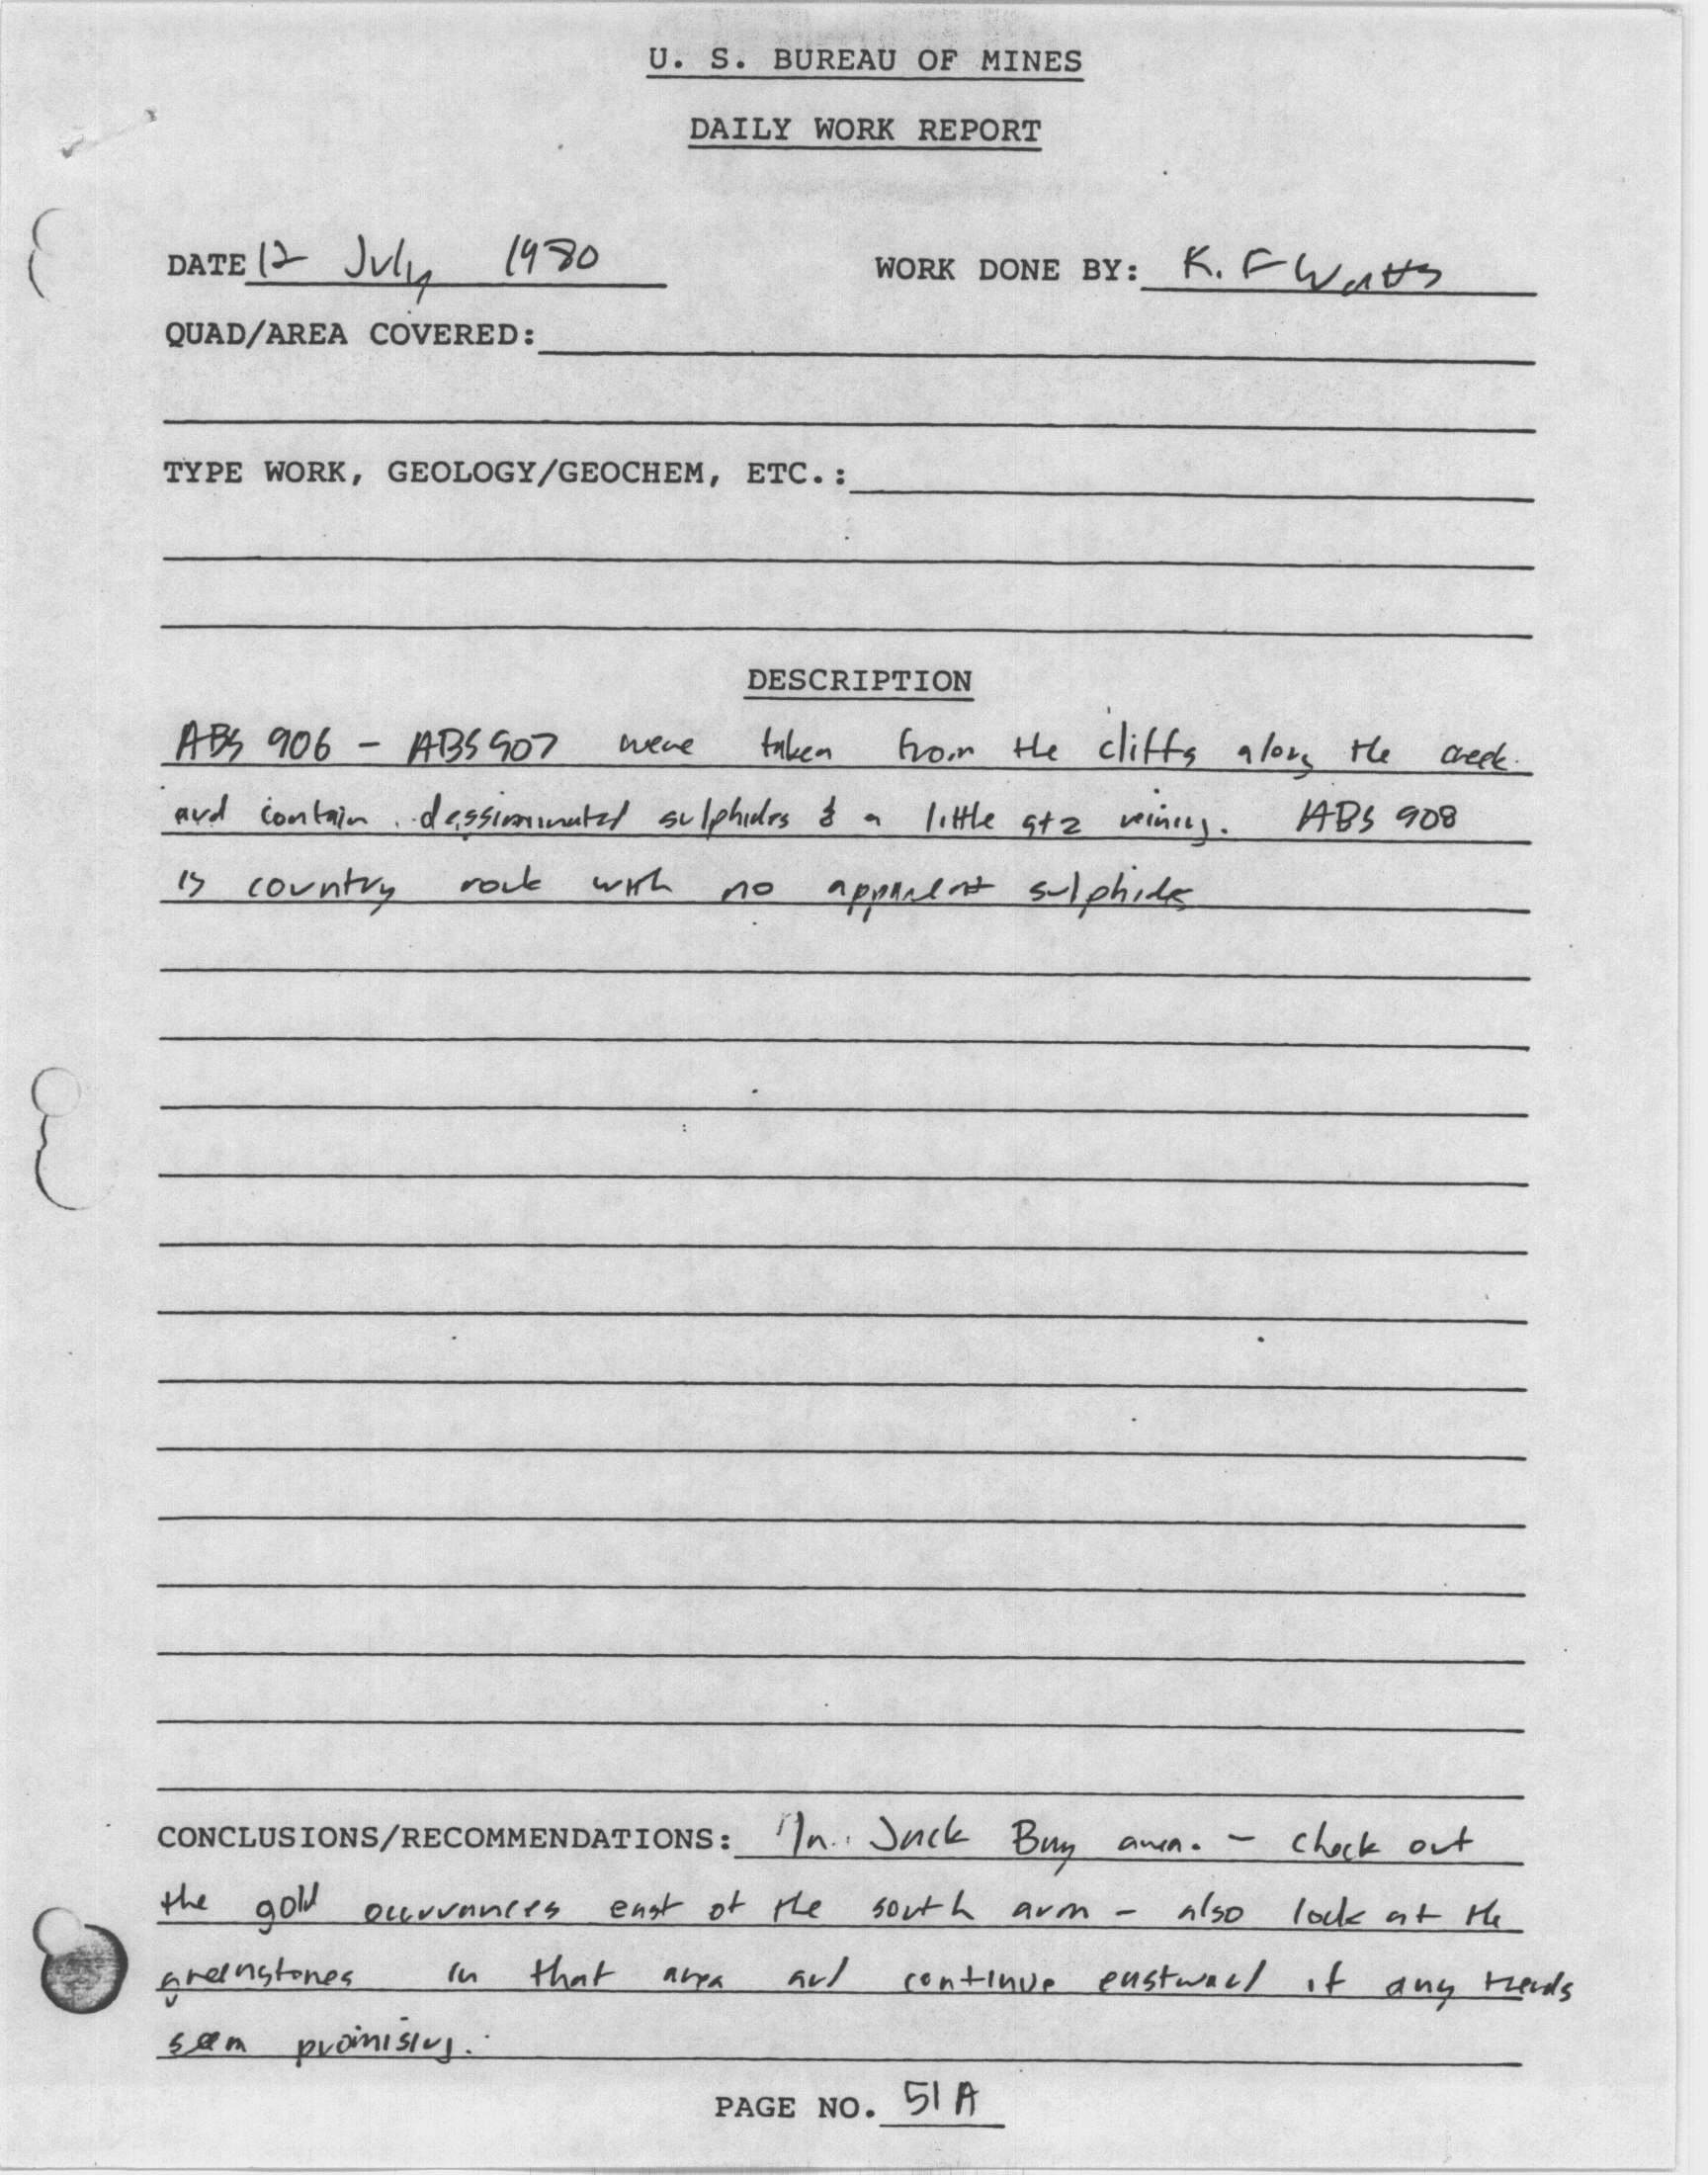 U. S. BUREAU OF MINES
DAILY WORK REPORT
DATE 12 July 1980 WORK DONE BY: K. F Watts
QUAD/AREA COVERED:
TYPE WORK, GEOLOGY/GEOCHEM, ETC.:
DESCRIPTION
ABS 906 - ABS 907 were taken from the cliffs along the creek
and contain dessiminated sulphides & a little qtz veining. ABS 908
is country rock with no apparent sulphides
CONCLUSIONS/RECOMMENDATIONS: In Jack Bay area. - check out
the gold occurrances east of the south arm - also look at the
greenstones in that area and continue eastward if any trends
seem promising.
PAGE NO. 51 A